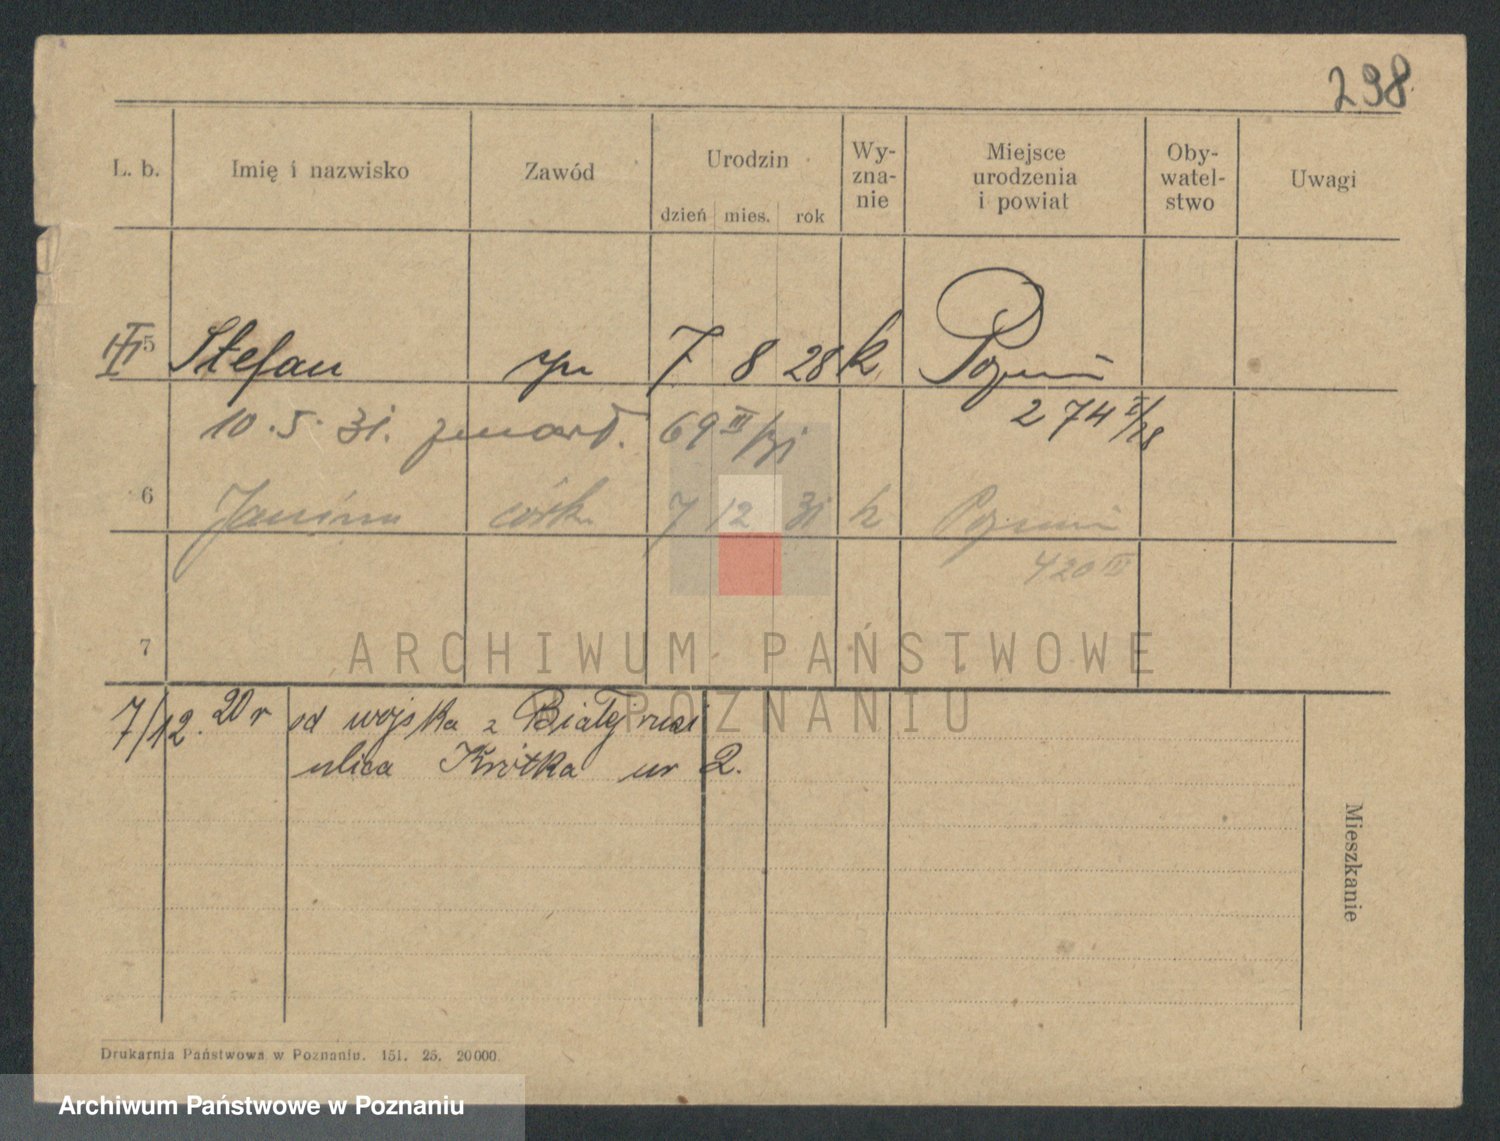 298
L. b. Imię i nazwisko Zawód Urodzin Wy-zna-nie Miejsce urodzenia i powiat Oby-watel-stwo Uwagi
dzień mies. rok
5 Stefan syn 7 8 28 k Poznań
274 I/28
10.5.31. zmarł. 69 III/31
6 Janina córk. 7 12 31 k Poznań
420 III
7
ARCHIWUM PAŃSTWOWE
POZNANIU
7/12. 20 r od wojska z Białej rusi
ulica Krótka nr 2.
Mieszkanie
Drukarnia Państwowa w Poznaniu. 151. 25. 20000.
Archiwum Państwowe w Poznaniu